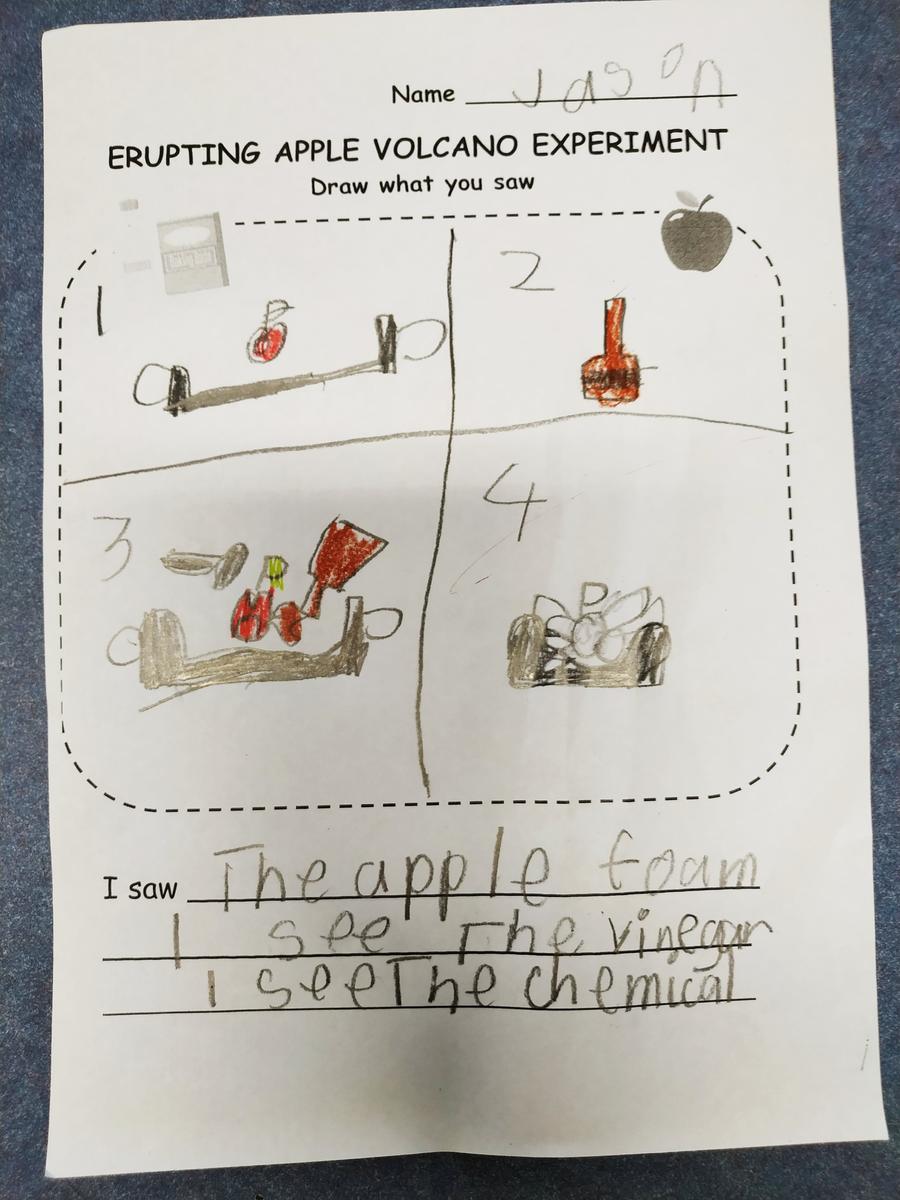 Name Jason
ERUPTING APPLE VOLCANO EXPERIMENT
Draw what you saw
1
2
3
4
I saw The apple foam
I see The vinegar
I see The chemical